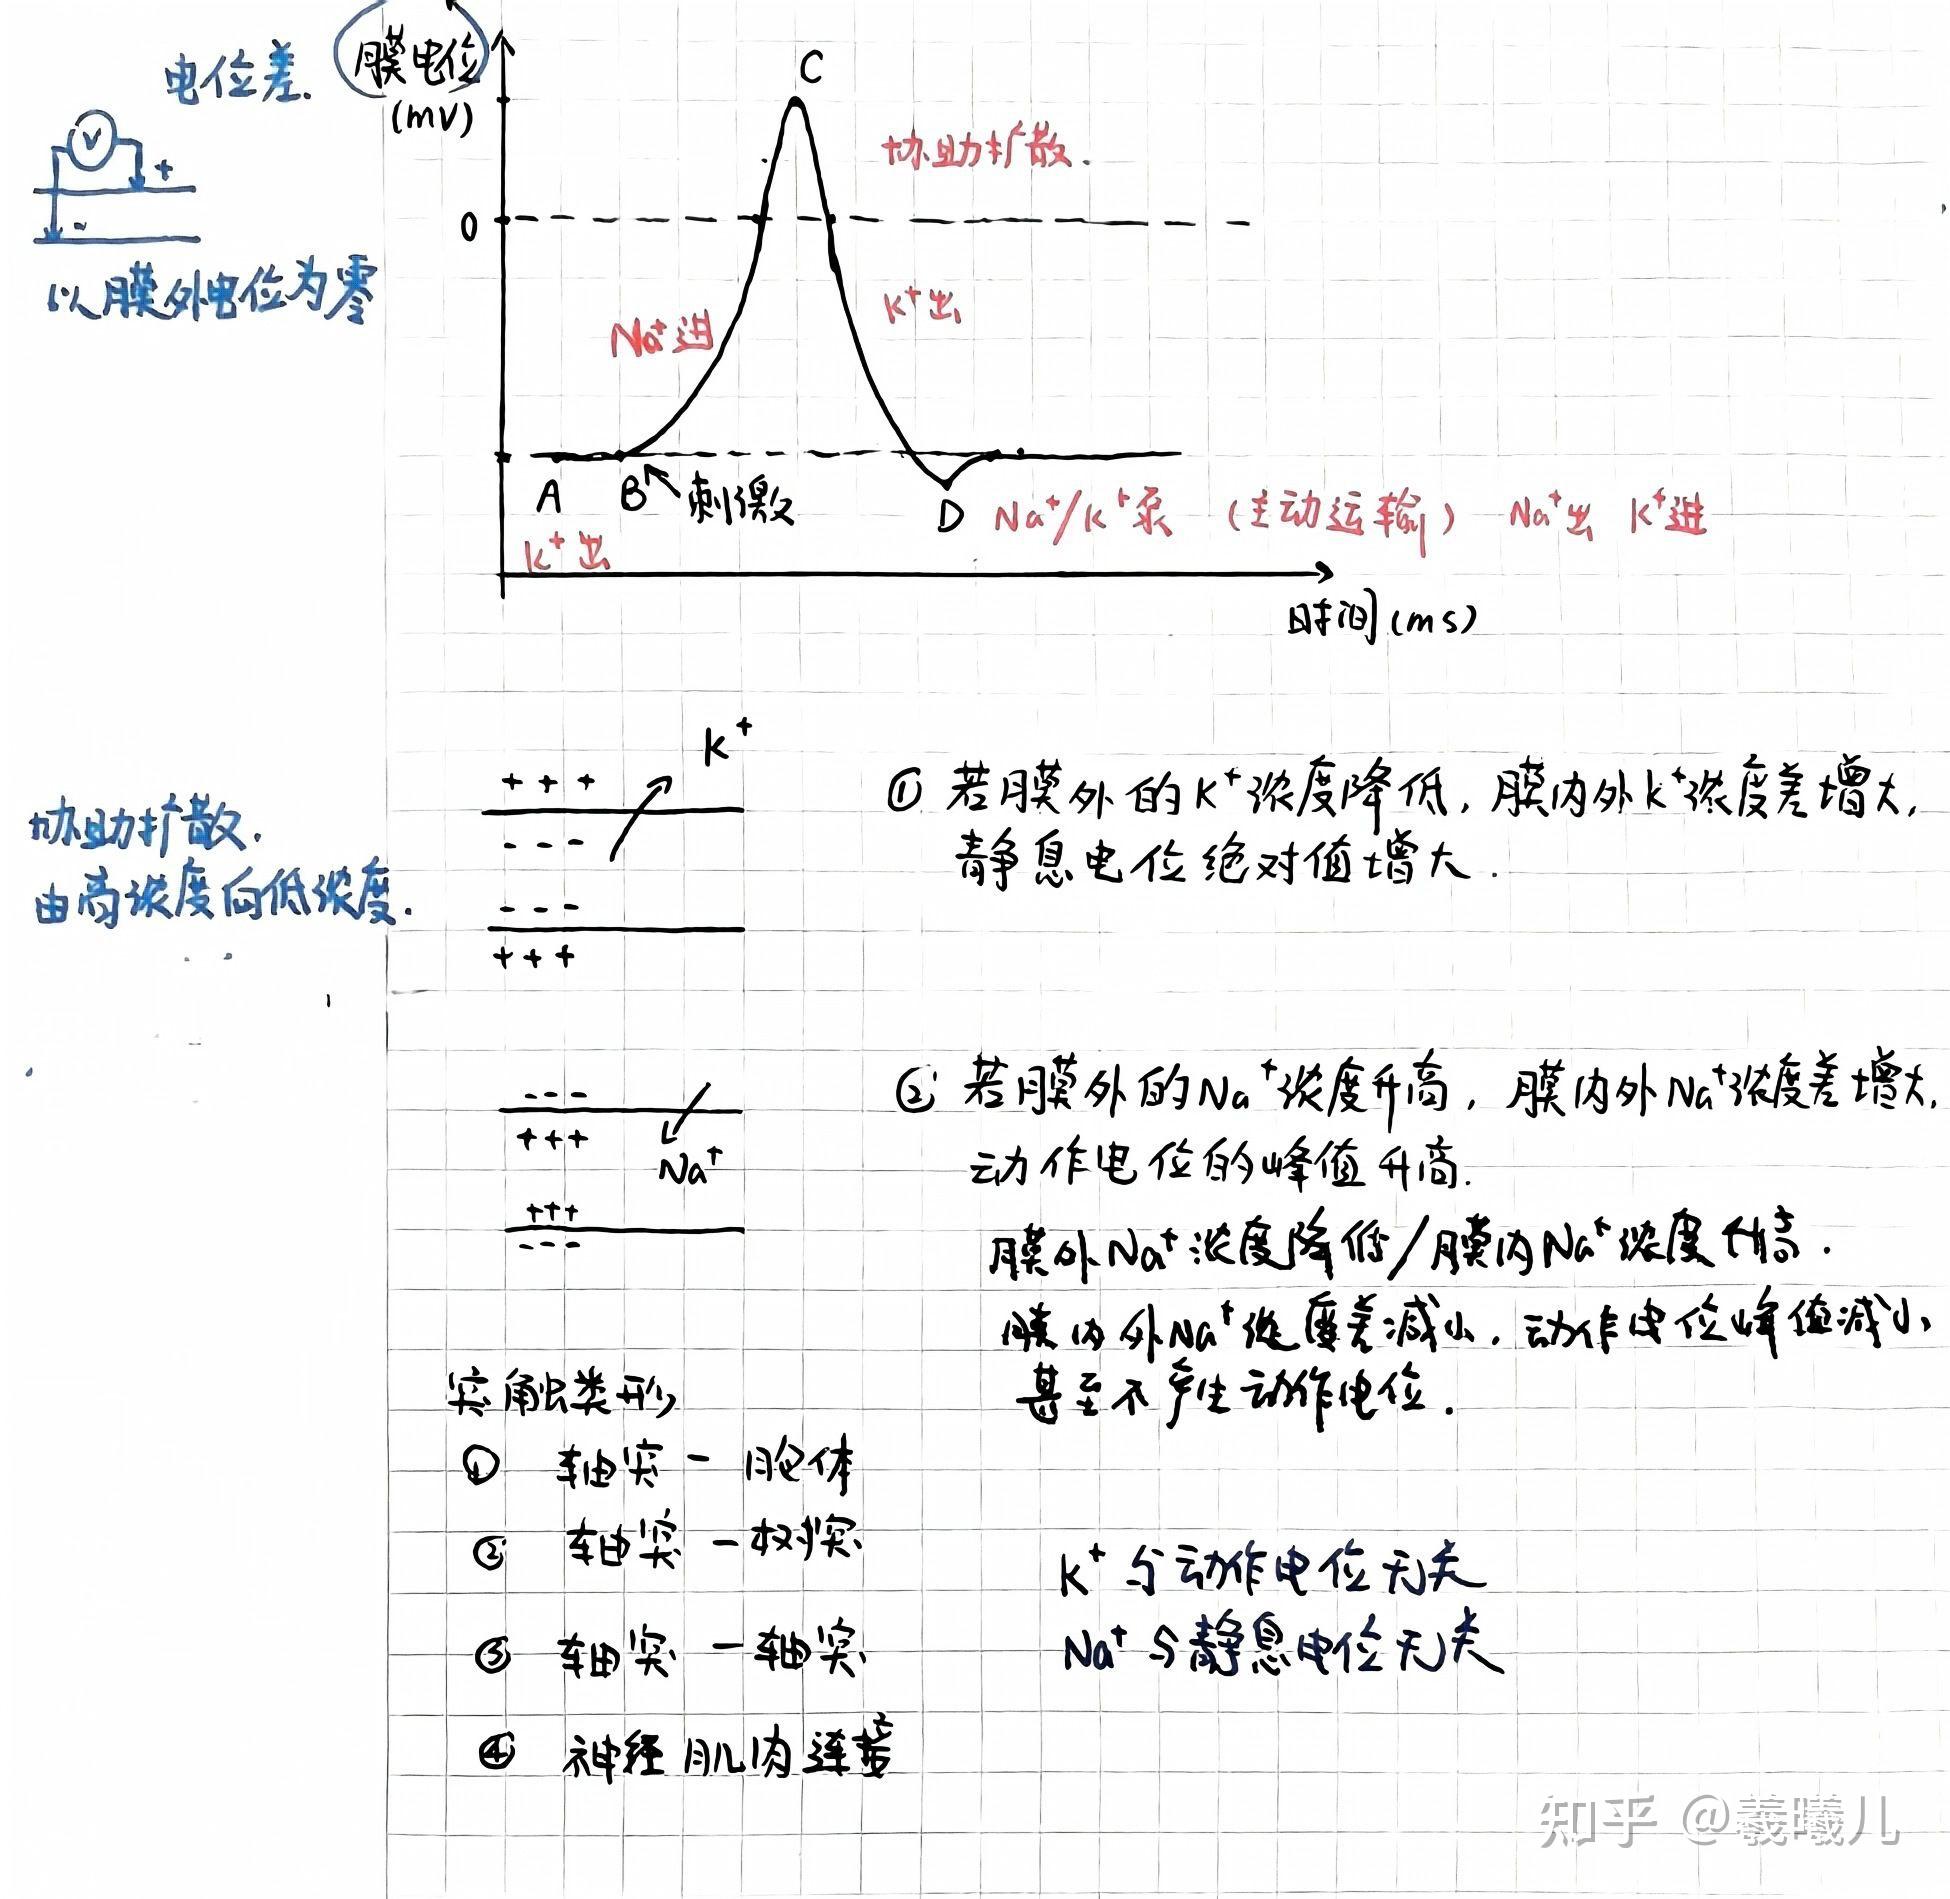 电位差.
膜电位
(mV)
C
V
+
-
协助扩散.
0
以膜外电位为零
K⁺出
Na⁺进
A
B
刺激
D
Na⁺/K⁺泵 (主动运输) Na⁺出 K⁺进
K⁺出
时间(ms)
K⁺
+ + +
- - -
- - -
+ + +
协助扩散.
由高浓度向低浓度.
① 若膜外的K⁺浓度降低, 膜内外K⁺浓度差增大,
静息电位绝对值增大.
- - -
+++
Na⁺
+++
- - -
② 若膜外的Na⁺浓度升高, 膜内外Na⁺浓度差增大,
动作电位的峰值升高.
膜外Na⁺浓度降低/膜内Na⁺浓度升高.
膜内外Na⁺浓度差减小, 动作电位峰值减小
甚至不产生动作电位.
突触类形
① 轴突-胞体
② 轴突-树突
③ 轴突-轴突
④ 神经肌肉连接
K⁺与动作电位无关
Na⁺与静息电位无关
知乎 @羲曦儿